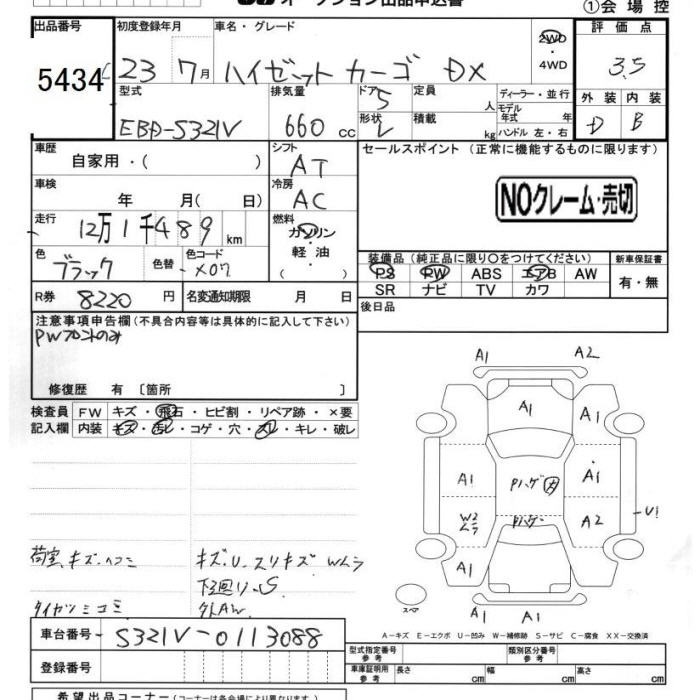 オークション出品申込書
①会場控
出品番号
5434
初度登録年月
23 7月
車名・グレード
ハイゼットカーゴ DX
2WD
・
4WD
評価点
3.5
型式
EBD-S321V
排気量
660 cc
ドア
5
形状
V
定員
人
積載
kg
ディーラー・並行
モデル
年式 年
ハンドル 左・右
外装
D
内装
B
車歴
自家用・( )
シフト
AT
セールスポイント (正常に機能するものに限ります)
車検
年 月( 日)
冷房
AC
NOクレーム・売切
走行
12万1千489 km
燃料
ガソリン
軽油
・( )
色
ブラック
色替
色コード
X07
装備品 (純正品に限り〇をつけてください)
PS PW ABS エアB AW
SR ナビ TV カワ
新車保証書
有・無
R券 8220 円
名変通知期限 月 日
後日品
注意事項申告欄 (不具合内容等は具体的に記入して下さい)
PWフロントのみ
修復歴 有 〔箇所 〕
検査員
記入欄
FW キズ・飛石・ヒビ割・リペア跡・×要
内装 キズ・汚レ・コゲ・穴・スレ・キレ・破レ
A1
A2
A1
A1
A1
Pハゲ
A1
W2
ムラ
Pハゲ
A2
U1
A1
A1
スペア
荷室キズ・ヘコミ
タイヤツミコミ
キズ・U・スリキズ Wムラ
下回り・S
外AW
A-キズ E-エクボ U-凹み W-補修跡 S-サビ C-腐食 XX-交換済
車台番号 S321V-0113088
登録番号
型式指定番号
参考
類別区分番号
参考
車庫証明用
参考
長さ cm
幅 cm
高さ cm
希望出品コーナー (コーナーは各会場により異なります)